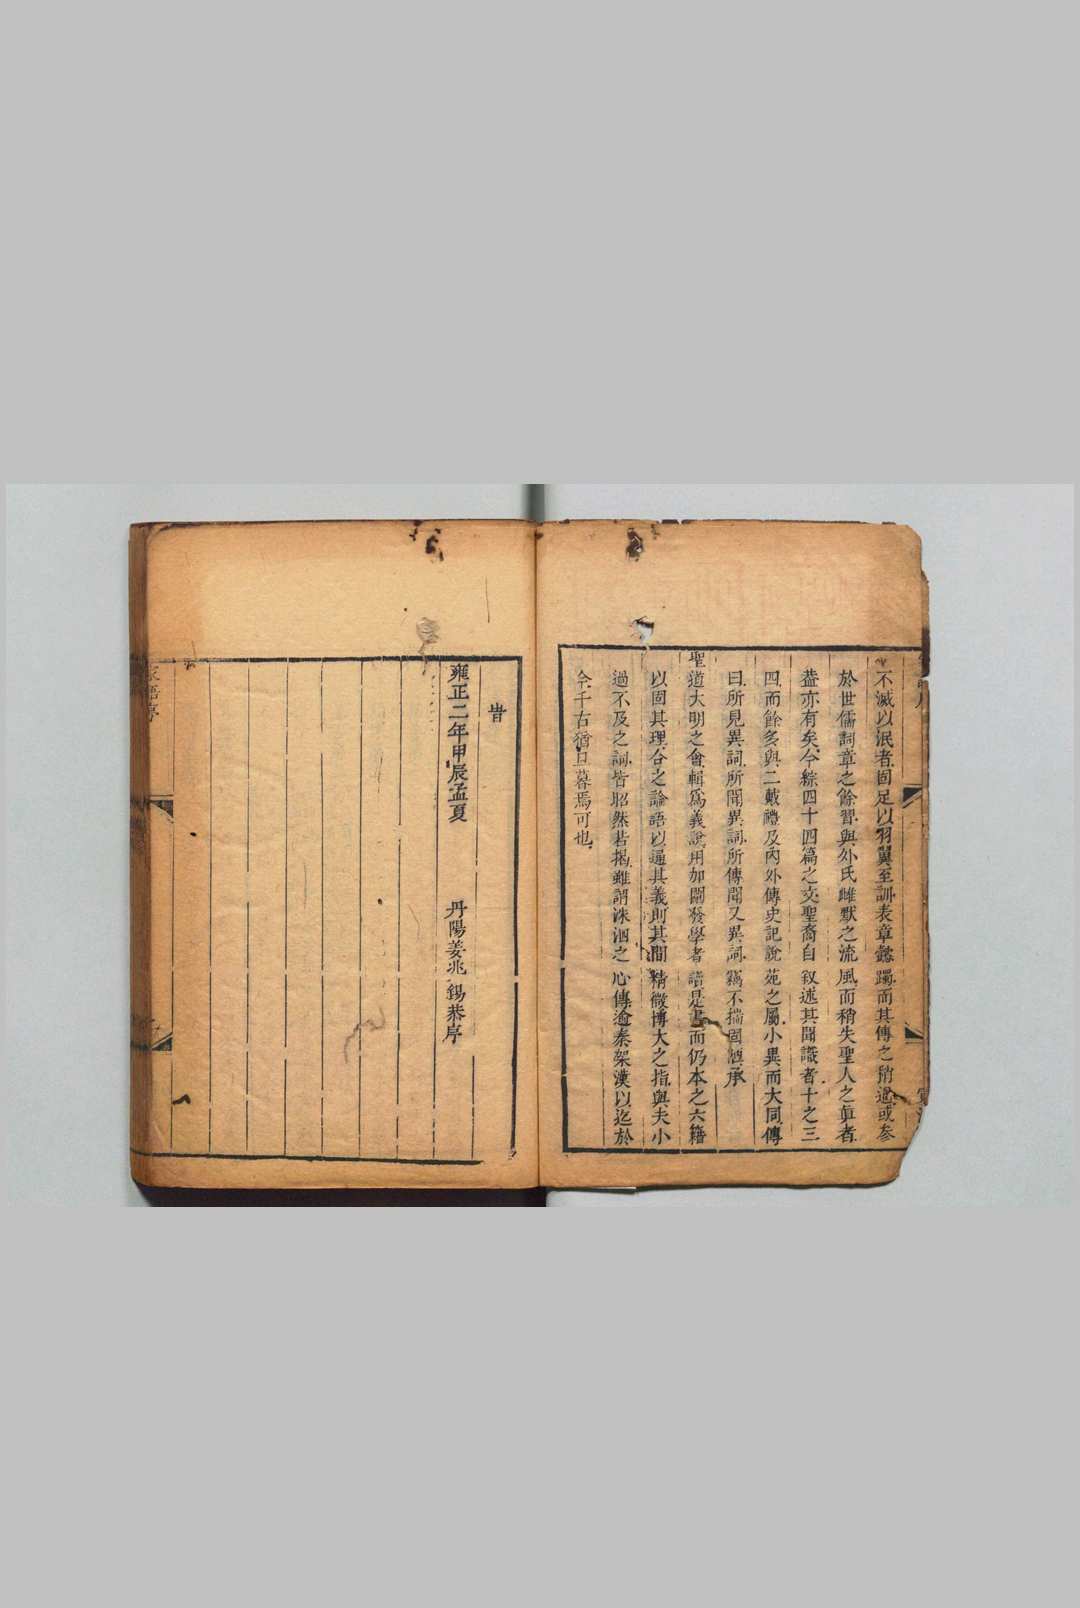 不滅以泯者固足以羽翼至訓表章蠡蠋而其傳之稍遠或参
於世儒詞章之餘習與外氏雌默之流風而稍失聖人之眞者
葢亦有矣今綜四十四篇之文聖裔自敘述其聞識者十之三
四而餘多與二戴禮及內外傳史記說苑之屬小異而大同傳
曰所見異詞所聞異詞所傳聞又異詞竊不揣固陋承
聖道大明之會輯爲義說用加闡發學者讀是書而仍本之六籍
以固其理合之論語以通其義則其間精微博大之指與夫小
過不及之詞皆昭然若揭雖謂洙泗之心傳逾秦架漢以迄於
今千古猶旦暮焉可也
旹
雍正二年甲辰孟夏 丹陽姜兆錫恭序
家語序